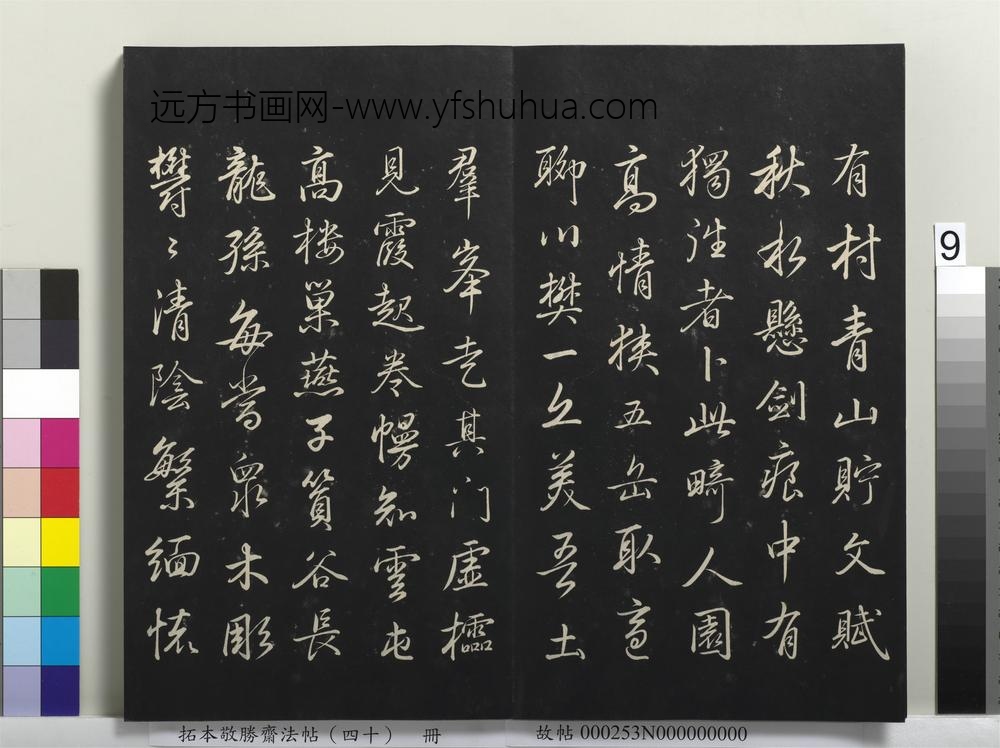 远方书画网-www.yfshuhua.com
有村青山貯文賦
秋水懸劍痕中有
獨往者卜此畸人園
高情狹五岳取適
聊川樊一丘美吾土
羣峯走其门虛櫺
見霞起卷幔知雲屯
高楼巢燕子篔谷長
龍孫每當眾木彫
欝〻清陰繁緬懷
9
拓本敬勝齋法帖（四十） 冊
故帖 000253N000000000